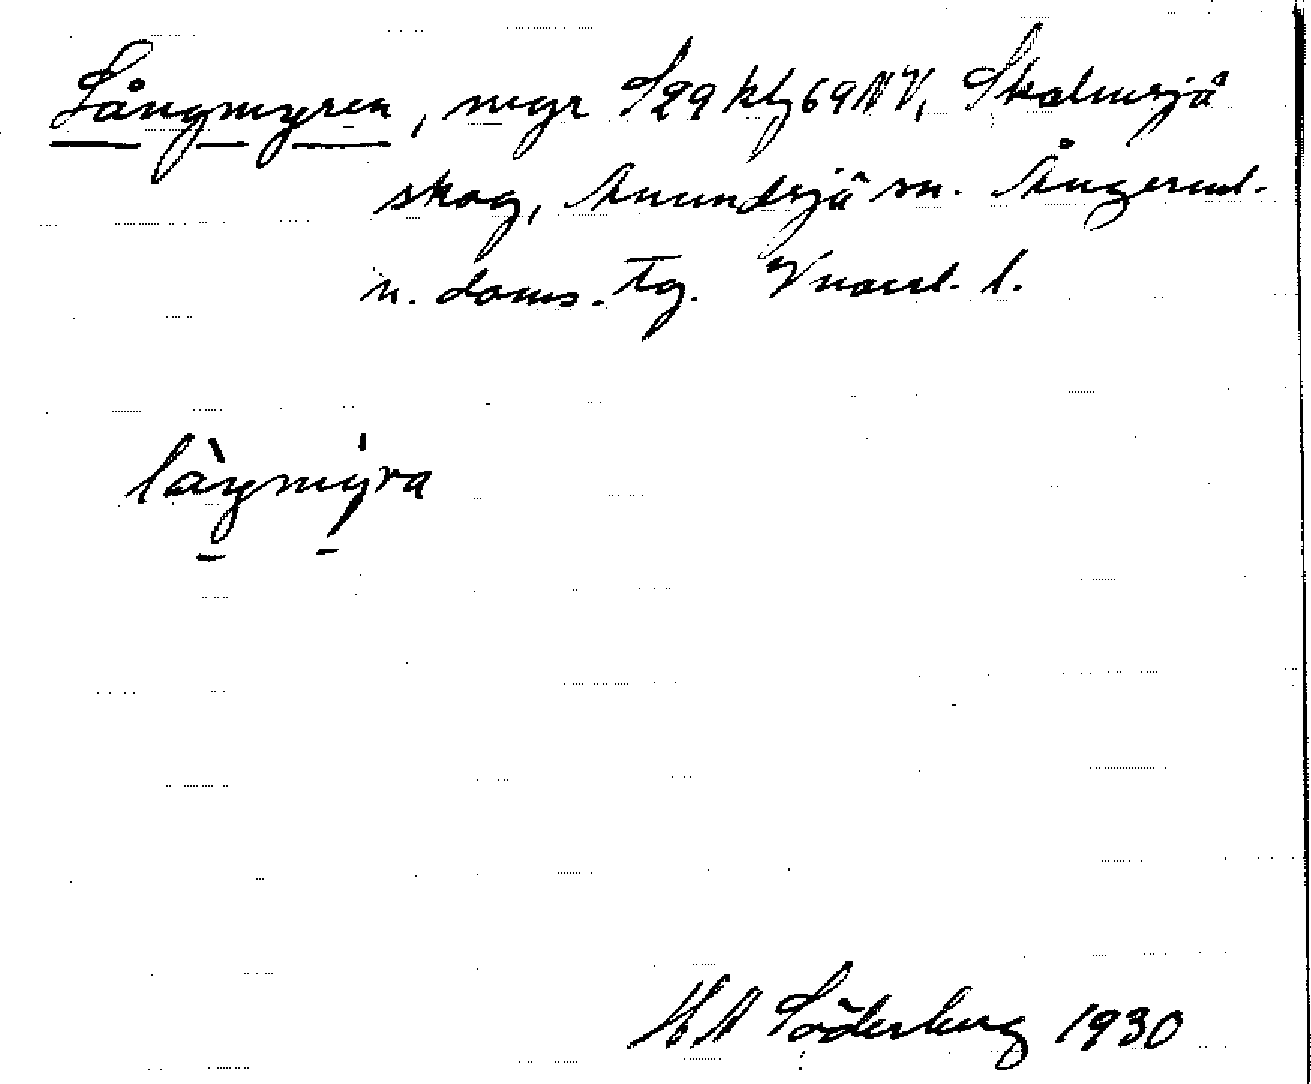 Långmyren, myr S29 kbg 69 NV, Skalmsjö
skog, Anundsjö sn. Ångerml.
n. doms. tg. Vnorrl. l.
làŋmýra
HA Söderberg 1930